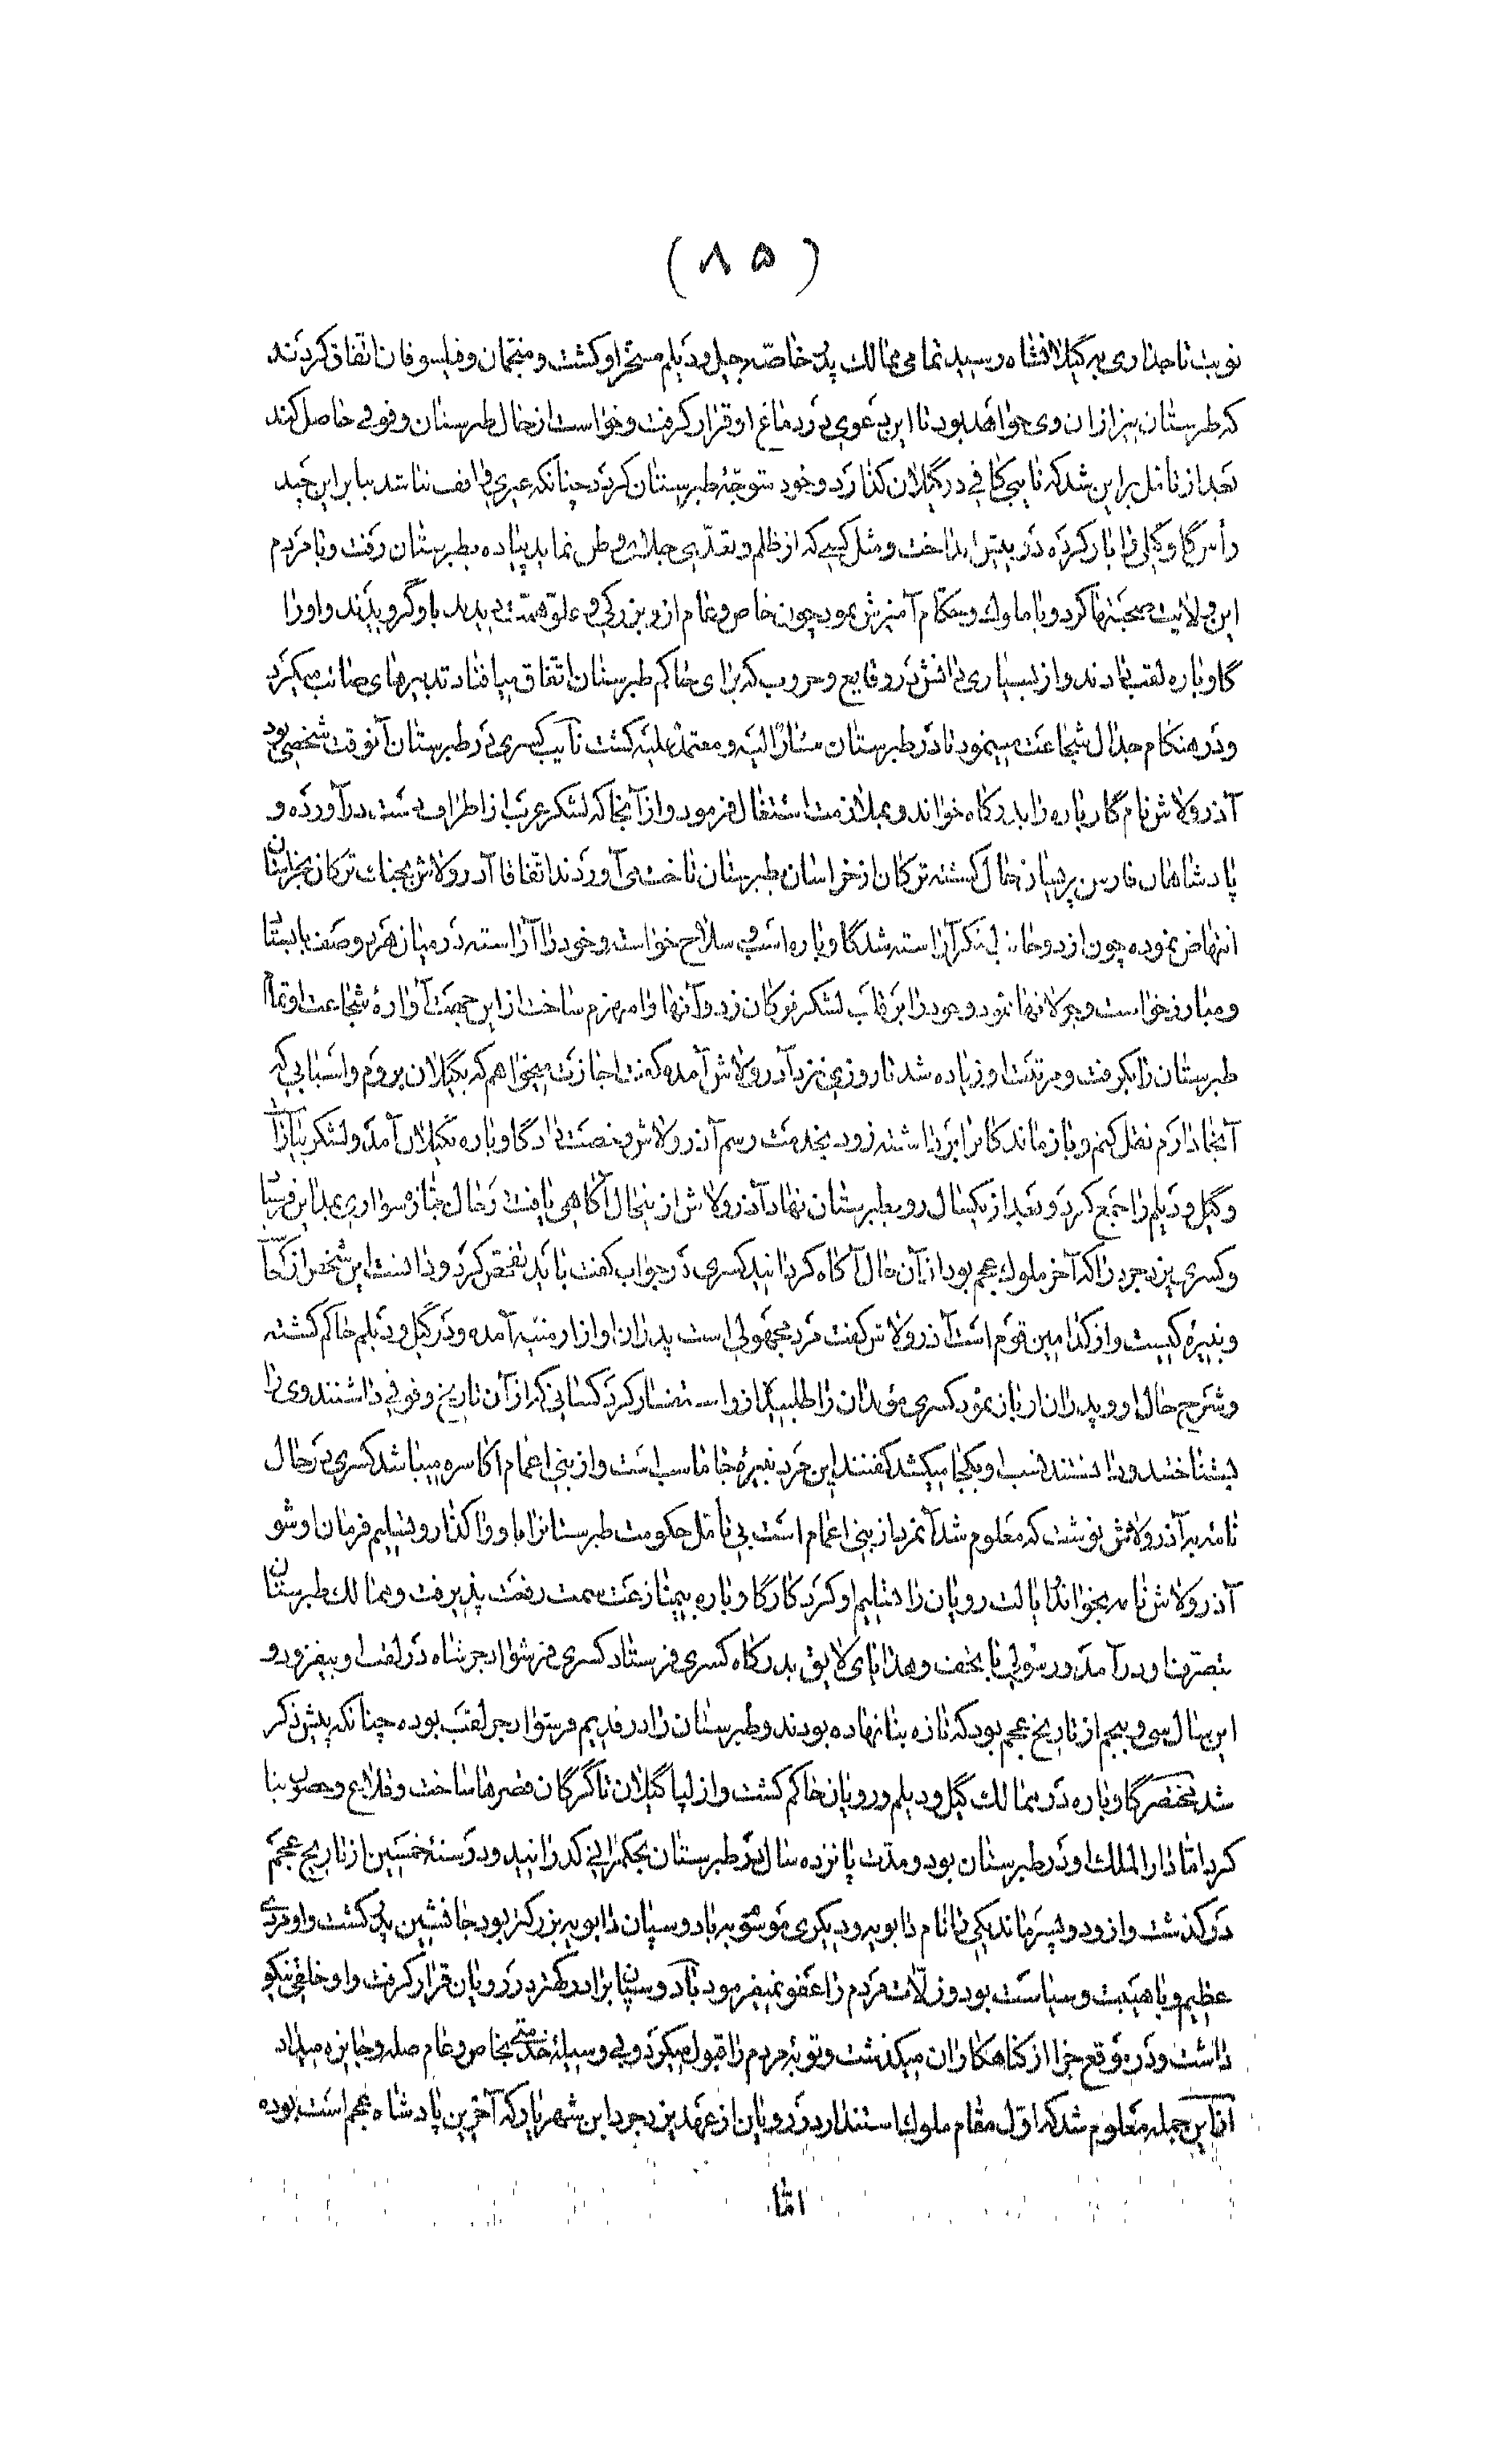 (۸۵)
نوبت تاجداری به گیلانشاه رسید تمامی ممالک پدر خاصه جیل و دیلم مسخر او گشت و منجمان و فیلسوفان اتفاق کردند
که طبرستان نیز از ان وی خواهد بود تا این دعوی در دماغ او قرار گرفت و خواست از حال طبرستان وقوفی حاصل کند
بعد از تأمل بر این شد که نایبی کافی در گیلان گذارد و خود متوجه طبرستان گردد چنانکه غیری واقف نباشد بنابراین چند
رأس گاو گیلی را بار کرده در پیش انداخت و مثل کسی که از ظلم و تعدی جلای وطن نماید پیاده بطبرستان رفت و با مردم
این ولایت صحبتها کرد و با ملوک و حکام آمیزش نمود چون خاص و عام از و بزرگی و علو همت دیدند باو گرویدند و او را
گاوباره لقب دادند و از بسیاری دانش در وقایع و حروب که برای حاکم طبرستان اتفاق میافتاد تدبیرهای صائب میکرد
و در هنگام جدال شجاعت مینمود تا در طبرستان مشارالیه و معتمدعلیه گشت نایب کسری در طبرستان آنوقت شخصی بود
آذرولاش نام گاوباره را بدرگاه خواند و بملازمت اشتغال فرمود و از آنجا که لشکر عرب از اطراف دست درآورده و
پادشاهان فارس پریشان حال گشته ترکان از خراسان بطبرستان تاخت می آوردند اتفاقا آذرولاش بجنگ ترکان بخراسان
انتهاض نموده چون از دو جانب لشکر آراسته شد گاوباره اسب و سلاح خواست و خود را آراسته در میان هر دو صف بایستاد
و مبارز خواست و جولانها نمود و خود را بر قلب لشکر ترکان زد و آنها را منهزم ساخت از این جهت آوازهٔ شجاعت او تمام
طبرستان را بگرفت و مرتبت او زیاده شد تا روزی نزد آذرولاش آمده گفت اجازت میخواهم که بگیلان بروم و اسبابی که
آنجا دارم نقل کنم و بازماندگانرا برداشته زود بخدمت رسم آذرولاش رخصت داد گاوباره بگیلان آمد و لشکر بیاراست
و گیل و دیلم را جمع کرد و بعد از یکسال رو بطبرستان نهاد آذرولاش از ینحال آگاهی یافت در حال جمازه سواری بمداین فرستاد
و کسری یزدجرد را که آخر ملوک عجم بود از آن حال آگاه گردانید کسری در جواب گفت باید تفحص کرد و دانست این شخص از کجاست
و نبیرهٔ کیست و از کدامین قوم است آذرولاش گفت مرد مجهولی است پدران او از ارمنیه آمده و در گیل و دیلم حاکم گشته
و شرح حال او و پدران او باز نمود کسری موبدان را طلبید و از او استفسار کرد کسانی که از آن تاریخ وقوفی داشتند وی را
بشناختند و دانستند نسب او بکجا میکشد گفتند این مرد نبیرهٔ جاماسب است و از بنی اعمام اکاسره میباشد کسری در حال
نامه به آذرولاش نوشت که معلوم شد آنمرد از بنی اعمام است بی تأمل حکومت طبرستانرا باو واگذار و تسلیم فرمان او شو
آذرولاش نامه بخواند ایالت رویان را تسلیم او کرد کار گاوباره بیمنازعت سمت رفعت پذیرفت و ممالک طبرستان
بتصرف او در آمد و رسولی با تحف و هدایای لایق بدرگاه کسری فرستاد کسری فرشوادجر شاه در لقب او بیفزود و
این سال سی و پنجم از تاریخ عجم بود که تازه بنا نهاده بودند و طبرستان را در قدیم فرشوادجر لقب بوده چنانکه پیش ذکر
شد مختصر گاوباره در ممالک گیل و دیلم و رویان حاکم گشت و از لیا گیلان تا گرگان قصرها ساخت و قلاع و حصون بنا
کرد اما دارالملک او در طبرستان بود و مدت پانزده سال در طبرستان بحکمرانی گذرانید و در سنهٔ خمسین از تاریخ عجم
درگذشت و از و دو پسر ماند یکی را نام دابویه و دیگری موسوم به بادوسپان دابویه بزرگتر بود جانشین پدر گشت و او مردی
عظیم و با هیبت و سیاست بود و زلات مردم را عفو نمیفرمود بادوسپان برادر کهتر در رویان قرار گرفت و او خلقی نیکو
داشت و در موقع جزا از گناهکاران میگذشت و توبهٔ مردم را قبول میکرد و بی وسیلهٔ خدمتی بخاص و عام صله و جایزه میداد
از این جمله معلوم شد که اول مقام ملوک استندار در رویان از عهد یزدجرد ابن شهریار که آخرین پادشاه عجم است بوده
اما